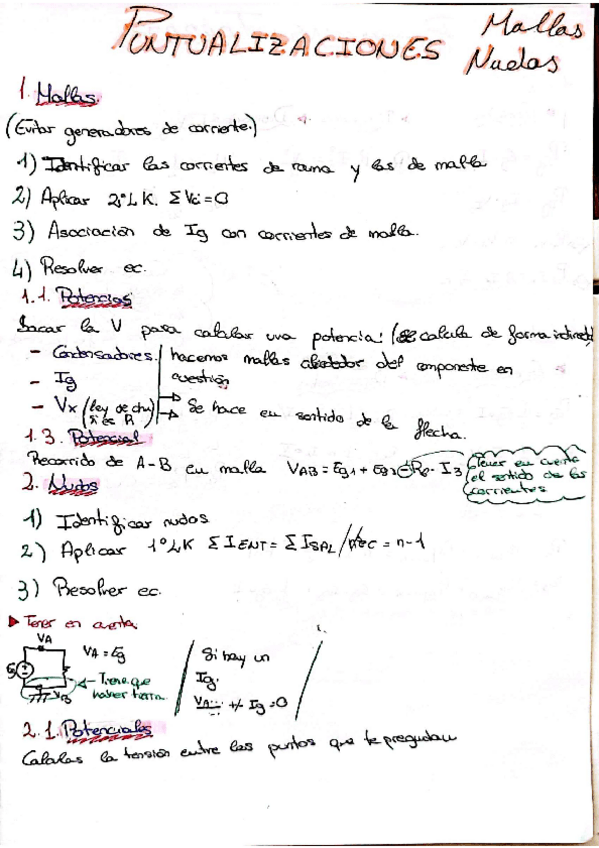 PUNTUALIZACIONES Mallas
Nudos
1. Mallas.
(Evitar generadores de corriente.)
1) Identificar las corrientes de rama y las de malla
2) Aplicar 2º LK. ΣVi=0
3) Asociación de Ig con corrientes de malla.
4) Resolver ec.
1.1. Potencias
Sacar la V para calcular una potencia: (se calcula de forma indirecta)
- Condensadores. hacemos mallas alrededor del componente en
- Ig cuestión
- Vx (ley de ohm si es R) → Se hace en sentido de la flecha.
1.3. Potencial
Recorrido de A-B en malla VAB = Eg1 + Eg2 - R8 · I3 (Tener en cuenta
el sentido de las
corrientes
2. Nudos
1) Identificar nudos
2) Aplicar 1º LK ΣIENT = ΣISAL / nºEC = n-1
3) Resolver ec.
▶ Tener en cuenta:
VA
VA = Eg
← Tiene que
haber tierra
VB
Si hay un
Ig.
+/- Ig = 0
2.1. Potenciales
Calculas la tensión entre los puntos que te preguntan